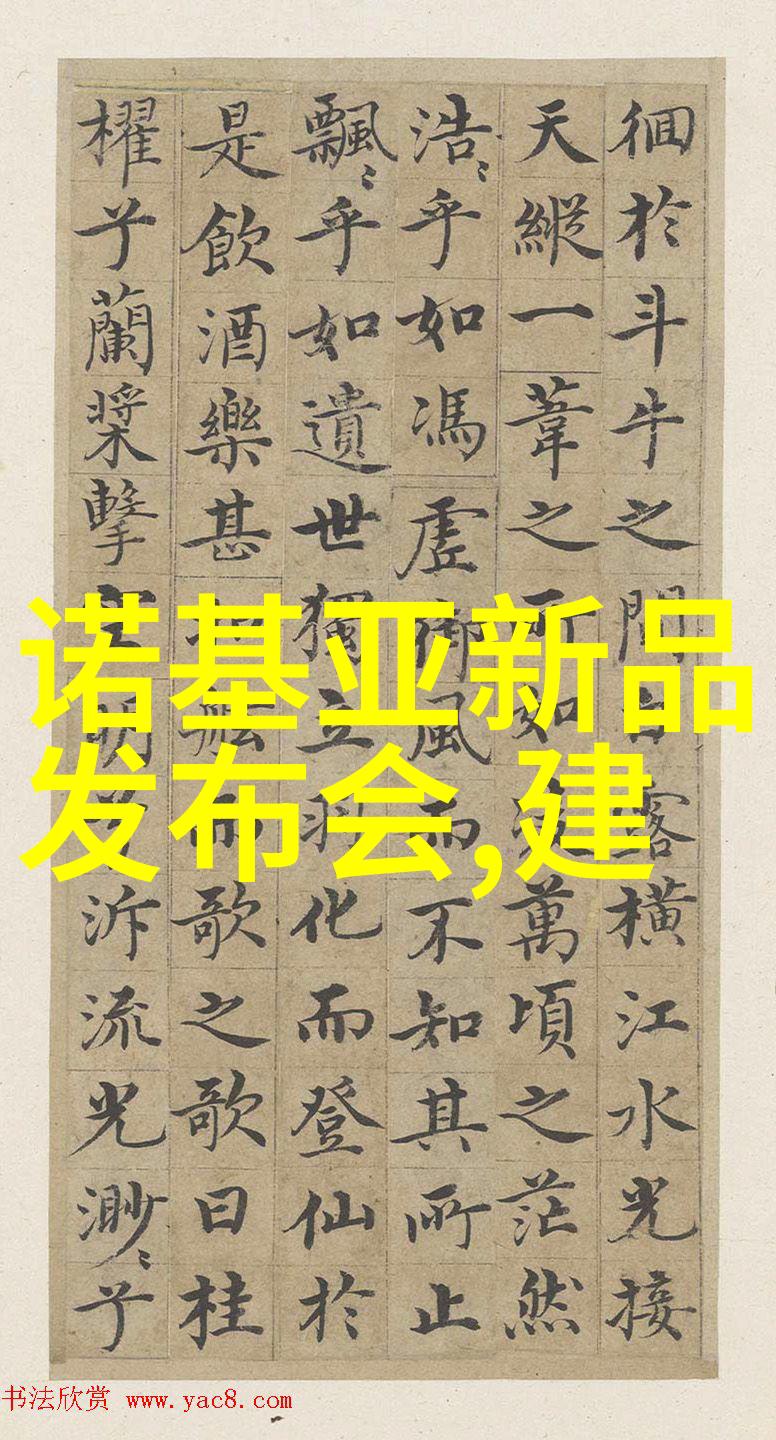 徊於斗牛之間白露橫江水光接
天縱一葦之所如淩萬頃之茫然
浩〻乎如馮虛御風而不知其所止
飄〻乎如遺世獨立羽化而登仙於
是飲酒樂甚扣舷而歌之歌曰桂
櫂兮蘭槳擊空明兮泝流光渺〻兮
诺基亚新品
发布会,建
书法欣赏 www.yac8.com